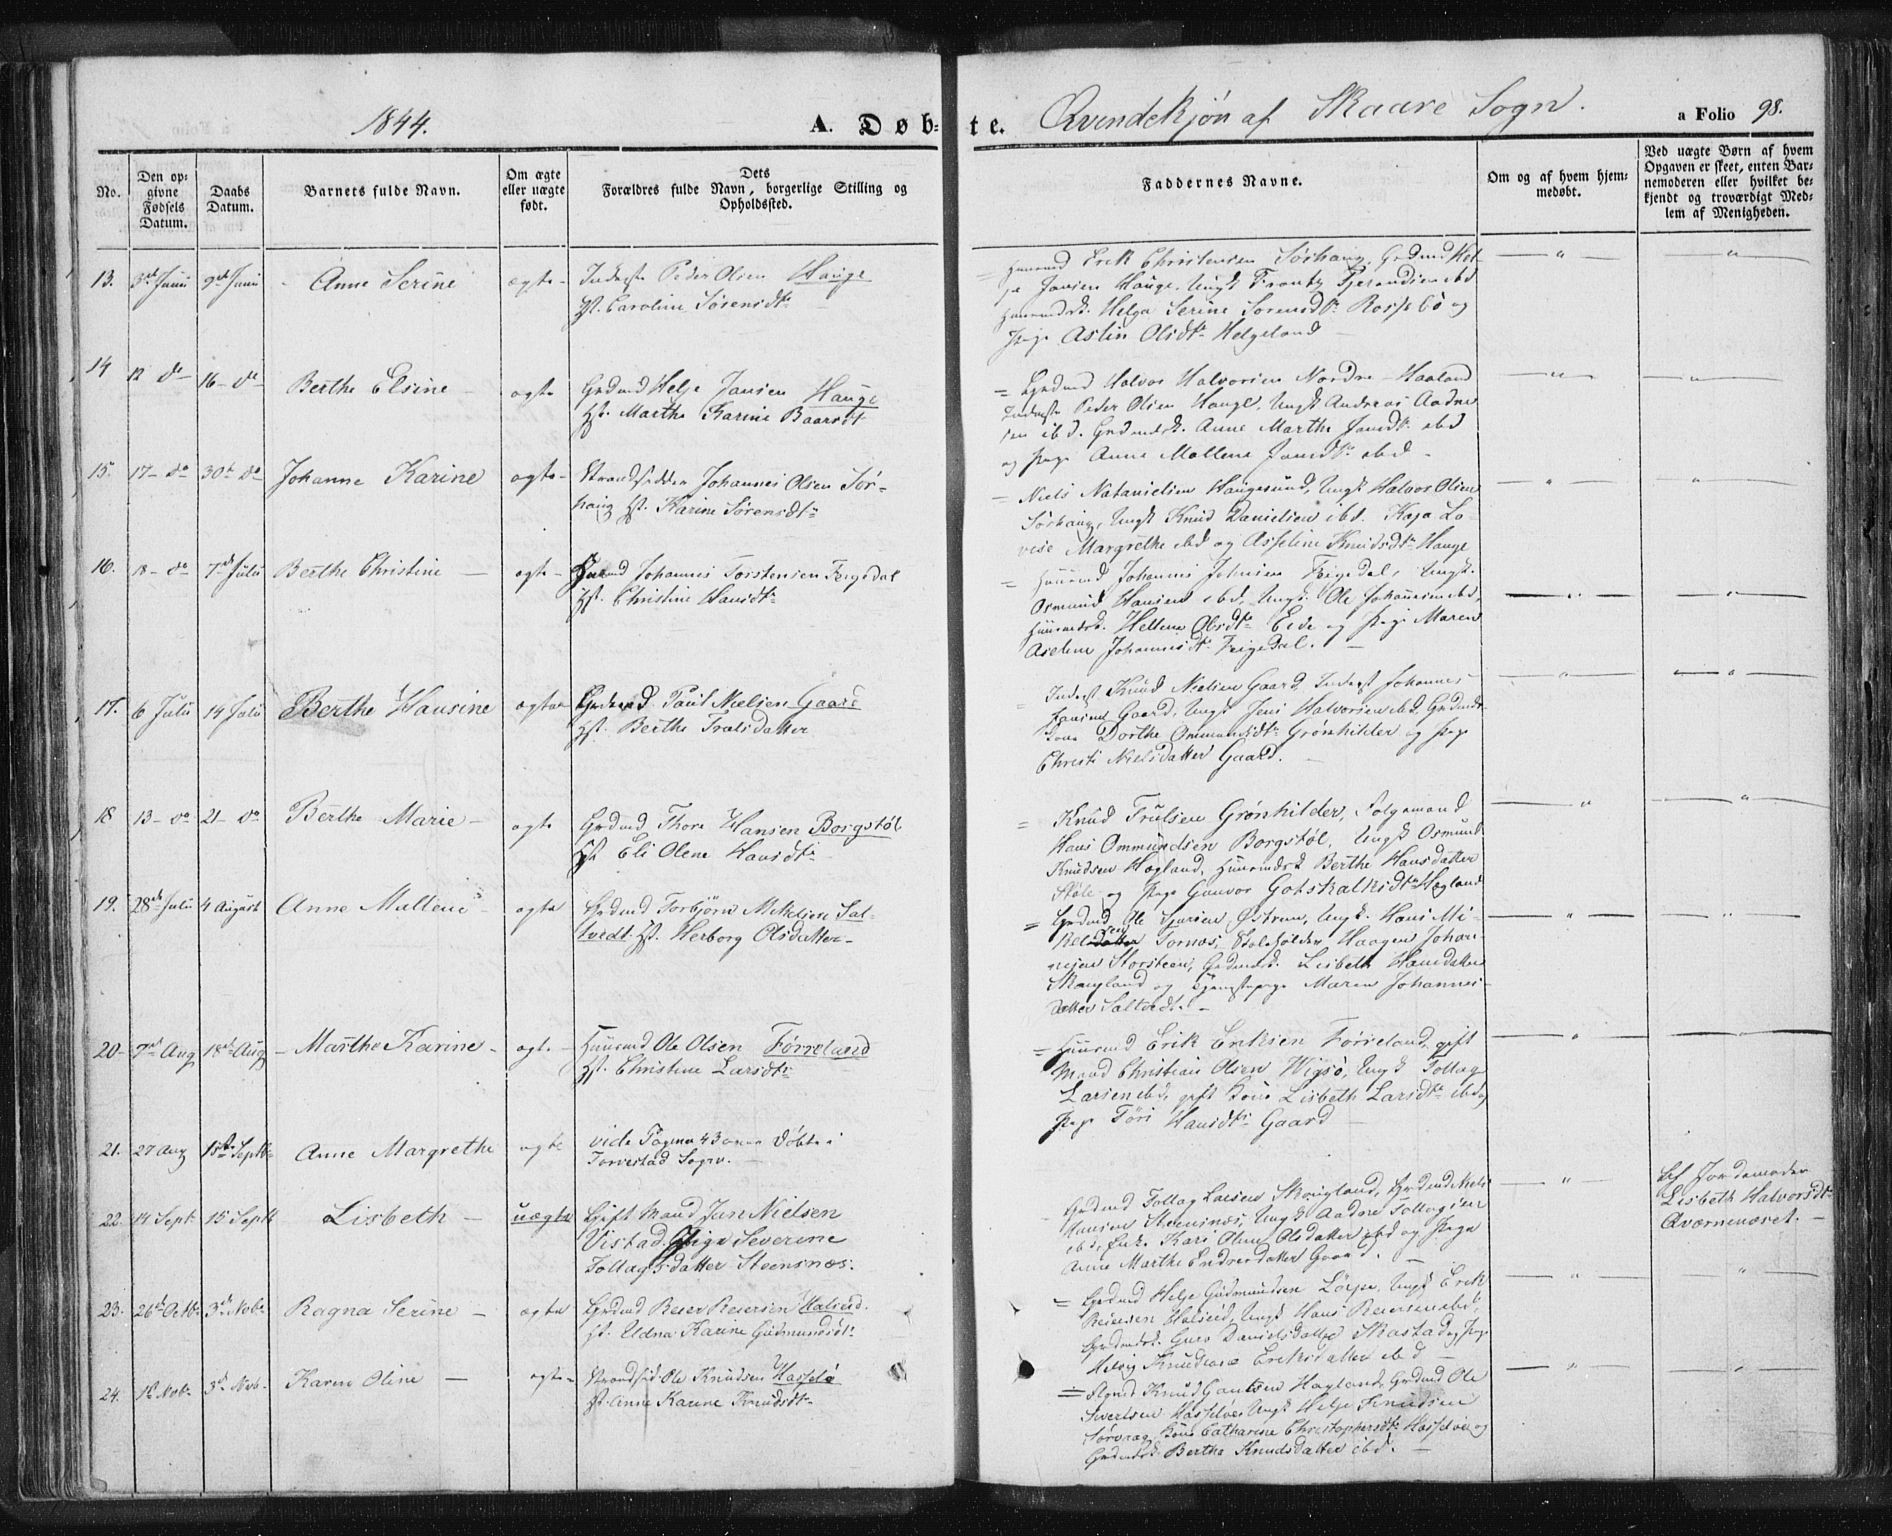 1844.
A. Døb=
te. Qvindekjøn af Skaare Sogn.
a Folio 98.
No.
Den op=
givne
Fødsels
Datum.
Daabs
Datum.
Barnets fulde Navn.
Om ægte
eller uægte
født.
Dets
Forældres fulde Navn, borgerlige Stilling og
Opholdssted.
Faddernes Navne.
Om og af hvem hjem=
medøbt.
Ved uægte Børn af hvem
Opgaven er skeet, enten Bar=
nemoderen eller hvilket be=
kjendt og troværdigt Med=
lem af Menigheden.
13. 3de Juni 9de Juni Anne Serine ægte Inderste Peder Olsen Hauge
H. Caroline Sørensdtr
Huusmd Erik Christensen Sørhaug, Grdmd Hel-
je Jansen Hauge, Ungk
Helga Serine Sørensdtr Rossebø og
Pige Astin Olsdtr Helgeland
14 12 do 16 do Berthe Elsine ægte Grdmd Helje Jansen Hauge
H. Marthe Karine Baarsdt
Grdmd Halvor Halvorsen Nordre Haaland
Inderste Peder Olsen Hauge, Ungk Andreas Aadne
sen ibd. Anne Marthe Jansdtr ibd
og Pige Anne Mallene Jansdtr ibd
15. 17 do 30te do Johanne Karine ægte Strandsidder Johannes Olsen Sør-
haug H. Karine Sørensdtr
Niels Natanielsen Haugesund, Ungk Halvor Olsen
Sørhaug, Ungk Knud Danielsen ibd. Kaja Lo-
vise Margrethe ibd og Asseline Knudsdtr Hauge
16. 18 do 7de Julii Berthe Christine ægte Johannes Torstensen Feigedal
H. Christine Hansdtr
Huusmd Johannes Johnsen Feigedal, Ungk.
Osmund Hansen ibd, Ungk. Ole Johannesen ibd,
Hellene Olsdtr Eide og Pige Maren
Aselene Johannesdtr Feigedal.
17. 6 Julii 14 Julii Berthe Hansine ægte Grdmd Paul Nielsen Gaard
H. Berthe Troelsdatter
Inderst Knud Nielsen Gaard, Inderst Johannes
Hansen Gaard, Ungk Jens Halvorsen ibd, Grdmds
kone Dorthe Ommundsdtr Grønhilder og Pige
Christi Nielsdatter Gaard.
18 13 do 21 do Berthe Marie ægte Grdmd Thore Hansen Borgstøl
H. Eli Olene Hansdtr
Knud Trulsen Grønhilder, Folgemand
Hans Ommundsen Borgstøl, Ungk Osmund
Knudsen Hagland, Berthe Hansdatter
Støle og Pige Gunvor Gotskalksdtr Hagland
19. 28de Julii 4 August Anne Mallene ægte Grdmd Torbjørn Mikkelsen Sal-
tvedt. H. Herborg Olsdatter
Grdmd Ole Østrem, Ungk. Hans Mi-
kelsen Tornes, Haagen Johan-
nesen Storsteen, Lisbeth Hansdatter
Skaugland og Tjenestepige Maren Johannes-
datter Saltvedt.
20 7de Aug 18de Aug Marthe Karine ægte Huusmd Ole Olsen Førreland
H. Christine Larsdtr
Huusmd Erik Eriksen Førreland, gift
Mand Christian Olsen Wigsø, Ungk Tollag
Larsen ibd, gift Kone Lisbeth Larsdtr ibd og
Pige Tøri Hansdtr Gaard
21. 27 Aug 15de Septbr Anne Margrethe ægte vide Pagina 43 over Døbte i
Torvestad Sogn.
22 14 Sept. 15 Septb Lisbeth uægte Gift Mand Jan Nielsen
Vistad. Pige Severine
Tollagsdatter Steensnæs.
Grdmd Tollag Larsen Skougland, Grdmd Nels
Hansen Steensnæs, Ungk Aadne Tollagsen
ibd, Enke Kari Oline Olsdatter ibd og Pige
Anne Marthe Endresdatter Gaard.
Af Jordemoder
Lisbeth Halvorsdtr
Qværnenæset.
23. 26de Octb. 3de Nob. Ragna Serine ægte Grdmd Reier Reiersen Halseid.
H. Udna Karine Gudmundsdtr
Grdmd Helje Gudmundsen Lørpe, Ungk Erik
Reiersen Halseid, Ungk Hans Reiersen ibd,
Guro Danielsdatter Skastad og Pige
Helvig Eriksdatter ibd
24. 1ste Nob. 3de Nob. Karen Oline ægte Strandsid. Ole Knudsen Hasselø
H. Anne Karine Knudsdtr
Knud Gautsen Hagland, Grdmd Ole
Sivertsen Hasseløe, Ungk Helje Knudsen
Sørvaag, Kone Catharine Christophersdtr Hasseløe og
Berthe Knudsdatter ibd.